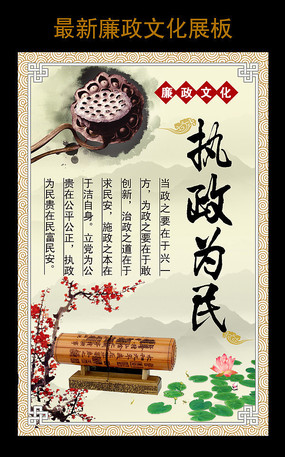 最新廉政文化展板
廉政文化
执政为民
当政之要在于兴一
方，为政之要在于敢
创新，治政之道在于
求民安，施政之本在
于洁自身。立党为公
贵在公平公正，执政
为民贵在民富民安。